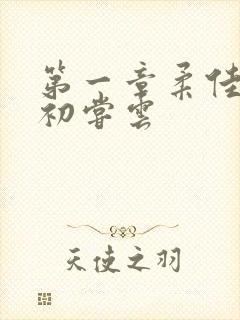 第一章柔佳
初尝云
天使之羽